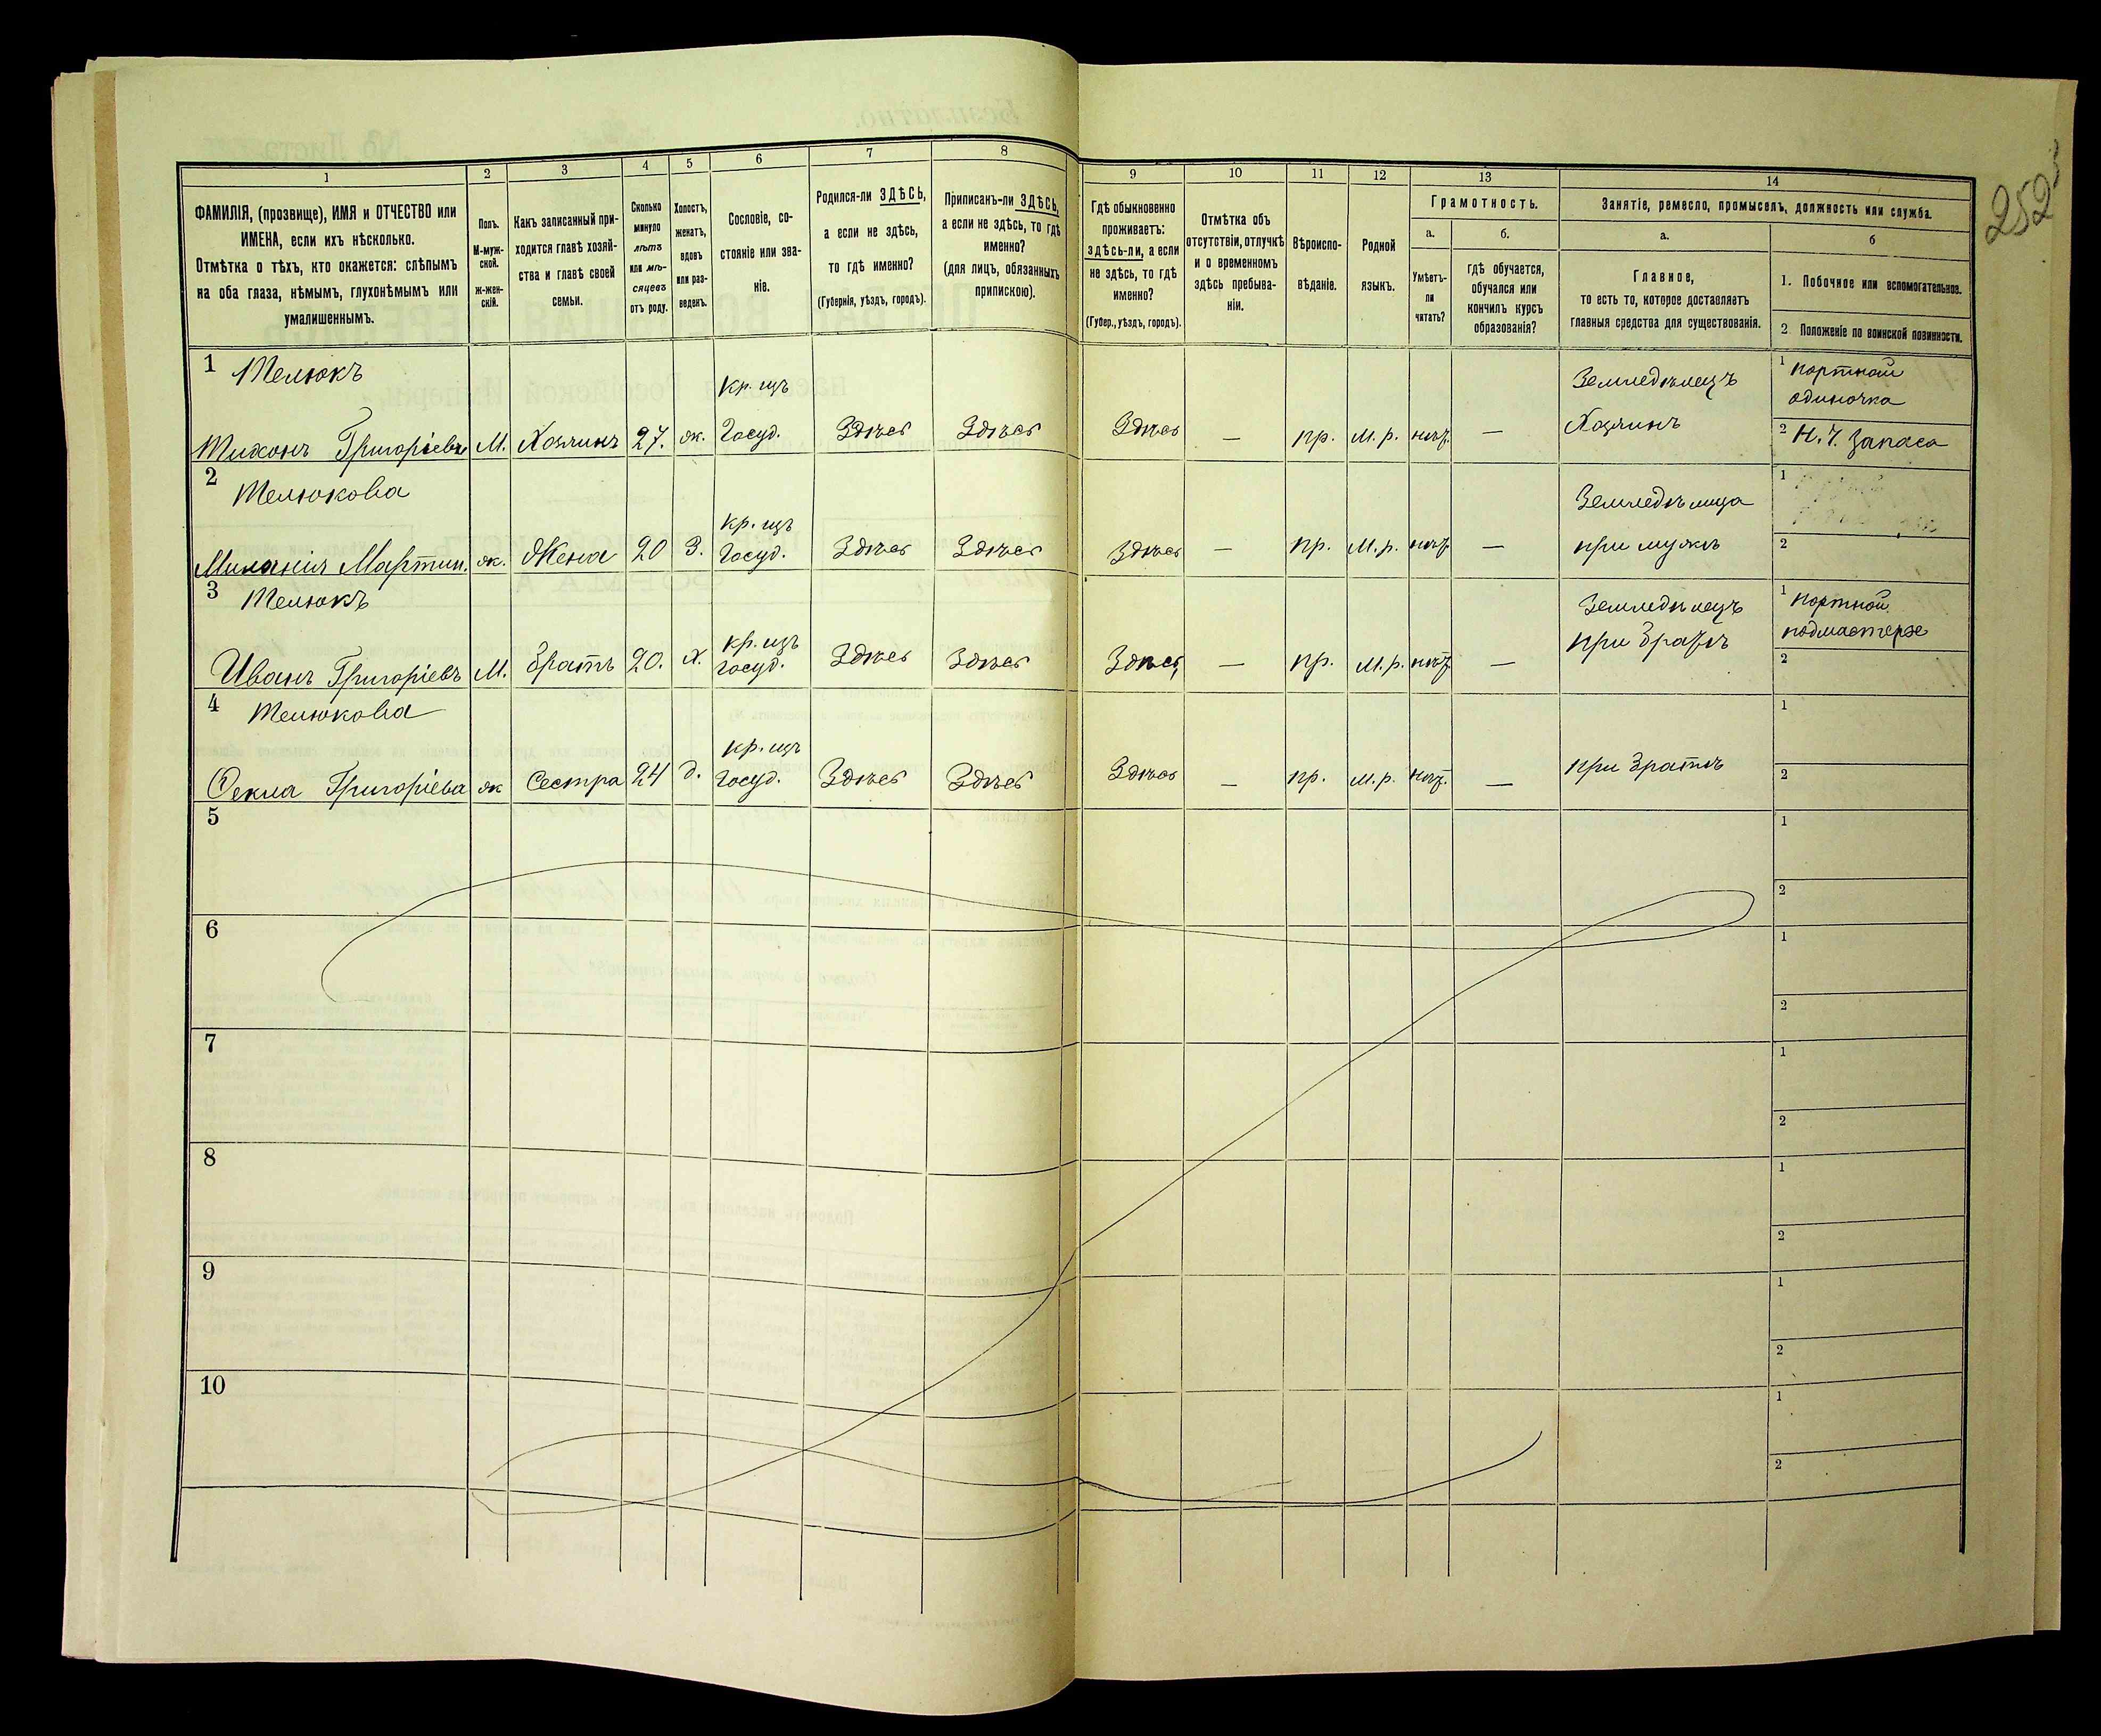 252
1 2 3 4 5 6 7 8 9 10 11 12 13 14
ФАМИЛІЯ, (прозвище), ИМЯ и ОТЧЕСТВО или
ИМЕНА, если ихъ нѣсколько.
Отмѣтка о тѣхъ, кто окажется: слѣпымъ
на оба глаза, нѣмымъ, глухонѣмымъ или
умалишеннымъ.
Полъ.
М-муж-
ской.
ж-жен-
скій.
Какъ записанный при-
ходится главѣ хозяй-
ства и главѣ своей
семьи.
Сколько
минуло
лѣтъ
или мѣ-
сяцевъ
отъ роду.
Холостъ,
женатъ,
вдовъ
или раз-
веденъ.
Сословіе, со-
стояніе или зва-
ніе.
Родился-ли ЗДѢСЬ,
а если не здѣсь,
то гдѣ именно?
(Губернія, уѣздъ, городъ).
Приписанъ-ли ЗДѢСЬ,
а если не здѣсь, то гдѣ
именно?
(для лицъ, обязанныхъ
припискою).
Гдѣ обыкновенно
проживаетъ:
здѣсь-ли, а если
не здѣсь, то гдѣ
именно?
(Губер., уѣздъ, городъ).
Отмѣтка объ
отсутствіи, отлучкѣ
и о временномъ
здѣсь пребыва-
ніи.
Вѣроиспо-
вѣданіе.
Родной
языкъ.
Грамотность.
а.
Умѣетъ-
ли
читать?
б.
гдѣ обучается,
обучался или
кончилъ курсъ
образованія?
Занятіе, ремесло, промыселъ, должность или служба.
а.
Главное,
то есть то, которое доставляетъ
главныя средства для существованія.
б
1. Побочное или вспомогательное.
2 Положеніе по воинской повинности.
1 Мелюкъ кр. изъ Земледѣлецъ 1 портной
одиночка
Тихонъ Григоріевъ М. Хозяинъ 27. ж. Госуд. Здѣсь Здѣсь Здѣсь — пр. М. р. нѣт. — Хозяинъ 2 Н. Ч. Запаса
2 Мелюкова кр. изъ Земледѣлица 1
Миланія Мартин. ж. Жена 20 З. Госуд. Здѣсь Здѣсь Здѣсь — пр. М. р. нѣт. — при мужѣ 2
3 Мелюкъ кр. изъ Земледѣлецъ 1 портной
подмастерье
Иванъ Григоріевъ М. братъ 20. Х. госуд. Здѣсь Здѣсь Здѣсь — пр. М. р. нѣт — при братѣ 2
4 Мелюкова кр. изъ 1
Ѳекла Григоріева ж Сестра 24 д. Госуд. Здѣсь Здѣсь Здѣсь — пр. М. р. нѣт. — при братѣ 2
5 1
2
6 1
2
7 1
2
8 1
2
9 1
2
10 1
2